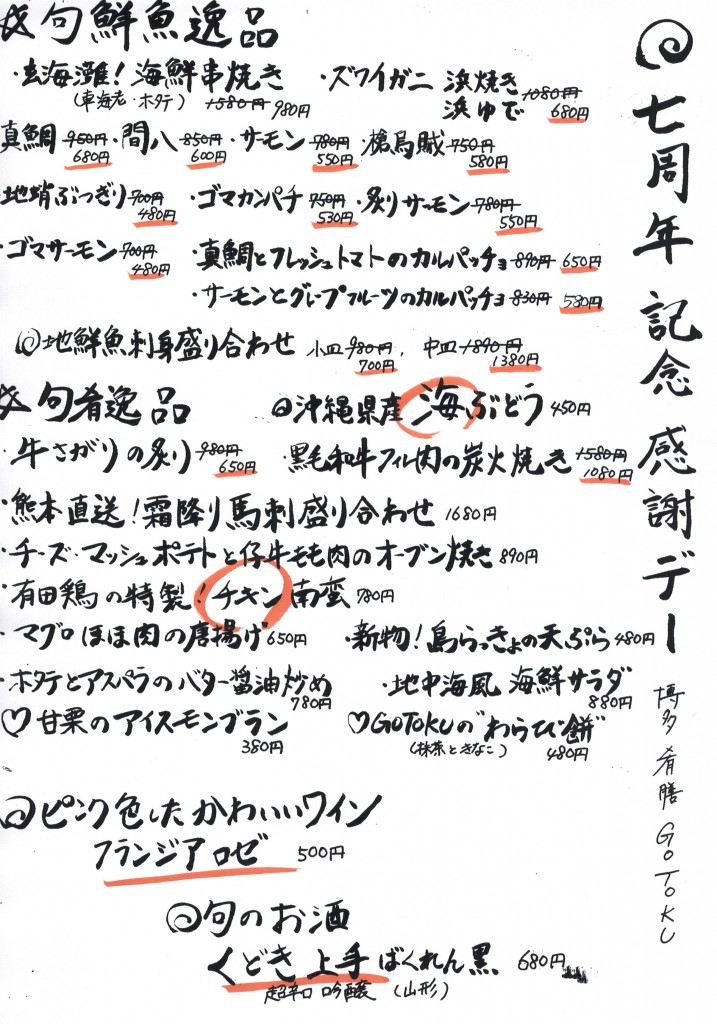 七周年 記念 感謝デー
博多 肴膳 GOTOKU
旬鮮魚逸品
・玄海灘！海鮮串焼き 1580円 980円
（車海老・ホタテ）
・ズワイガニ 浜焼き 浜ゆで 1080円 680円
真鯛 950円 680円 ・間八 850円 600円 ・サーモン 780円 550円 ・槍烏賊 750円 580円
地蛸ぶつぎり 700円 480円 ・ゴマカンパチ 750円 530円 ・炙りサーモン 780円 550円
・ゴマサーモン 700円 480円 ・真鯛とフレッシュトマトのカルパッチョ 890円 650円
・サーモンとグレープフルーツのカルパッチョ 830円 580円
地鮮魚刺身盛り合わせ 小皿 980円 700円, 中皿 1890円 1380円
旬肴逸品 沖縄県産 海ぶどう 450円
・牛さがりの炙り 980円 650円 ・黒毛和牛フィレ肉の炭火焼き 1580円 1080円
・熊本直送！霜降り馬刺盛り合わせ 1680円
・チーズ・マッシュポテトと仔牛もも肉のオーブン焼き 890円
・有田鶏の特製！チキン南蛮 780円
・マグロほほ肉の唐揚げ 650円 ・新物！島らっきょの天ぷら 480円
・ホタテとアスパラのバター醤油炒め 780円 ・地中海風 海鮮サラダ 880円
♡甘栗のアイスモンブラン 380円 ♡GOTOKUの"わらび餅" 480円
（抹茶ときなこ）
ピンク色したかわいいワイン
フランジア ロゼ 500円
旬のお酒
くどき上手 ばくれん 黒 680円
超辛口 吟醸（山形）